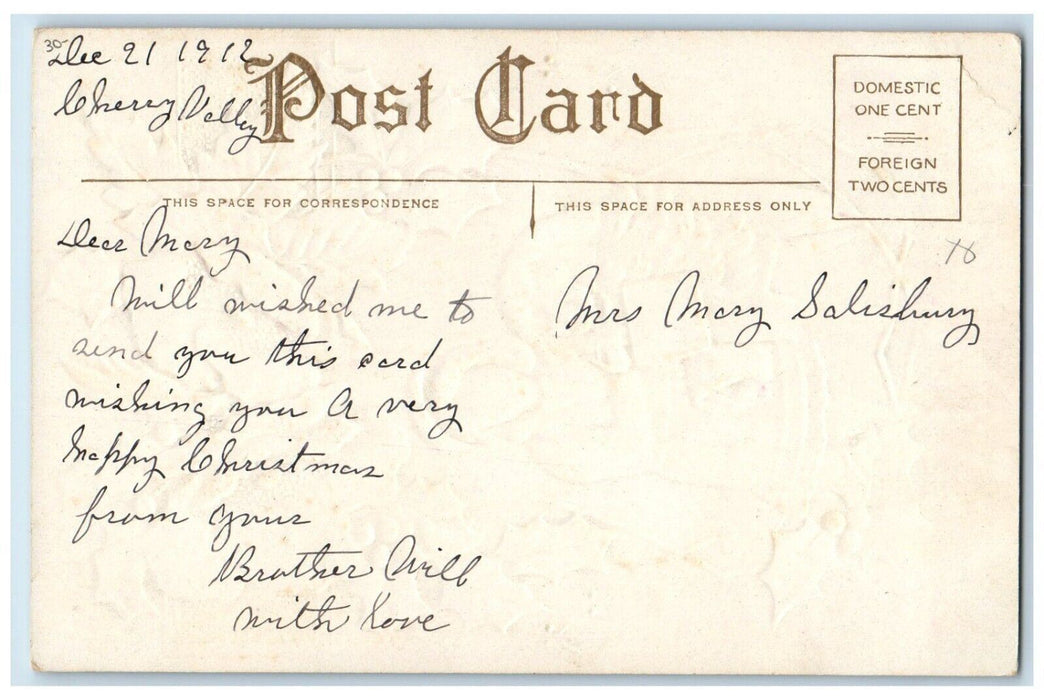 30-
Dec 21 1912
Cherry Valley
Post Card
DOMESTIC
ONE CENT
FOREIGN
TWO CENTS
THIS SPACE FOR CORRESPONDENCE
THIS SPACE FOR ADDRESS ONLY
Dear Mary
Will wished me to
send you this card
wishing you A very
happy Christmas
from your
Brother Will
with love
18
Mrs Mary Salisbury